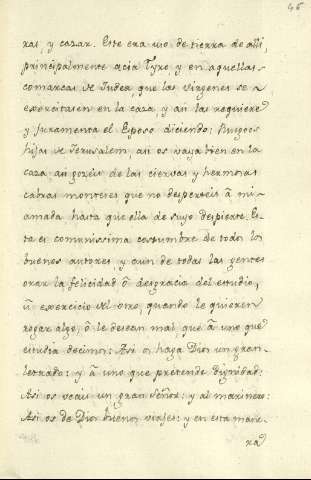 46
ras, y cazar. Este era uso de tierra de alli,
principalmente acia Tyro y en aquellas
comarcas de Judea, que las virgenes se
exercitasen en la caza, y asi las requiere
y juramenta el Esposo diciendo: Ruegoos
hijas de Jerusalem, asi os vaya bien en la
caza asi gozeis de las ciervas y hermosas
cabras monteses que no desperteis á mi
amada hasta que ella de suyo despierte. Es
ta es comunissima costumbre de todos los
buenos autores y aun de todas las gentes
orar la felicidad ó desgracia del estudio,
ú exercicio del otro, quando le quieren
rogar algo, ó le desean mal, que á uno que
estudia decimos: Asi os haga Dios un gran
letrado: y á uno que pretende dignidad:
Asi os veais un gran Señor: y al marinero:
Asi os dé Dios buenos viajes: y en esta mane
ra